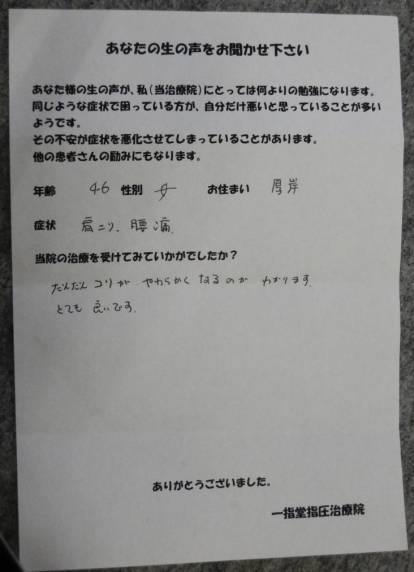 あなたの生の声をお聞かせ下さい
あなた様の生の声が、私(当治療院)にとっては何よりの勉強になります。
同じような症状で困っている方が、自分だけ悪いと思っていることが多い
ようです。
その不安が症状を悪化させてしまっていることがあります。
他の患者さんの励みにもなります。
年齢 46 性別 女 お住まい 厚岸
症状 肩こり、腰痛
当院の治療を受けてみていかがでしたか?
だんだん コリが やわらかく なるのが わかります。
とても 良いです。
ありがとうございました。
一指堂指圧治療院